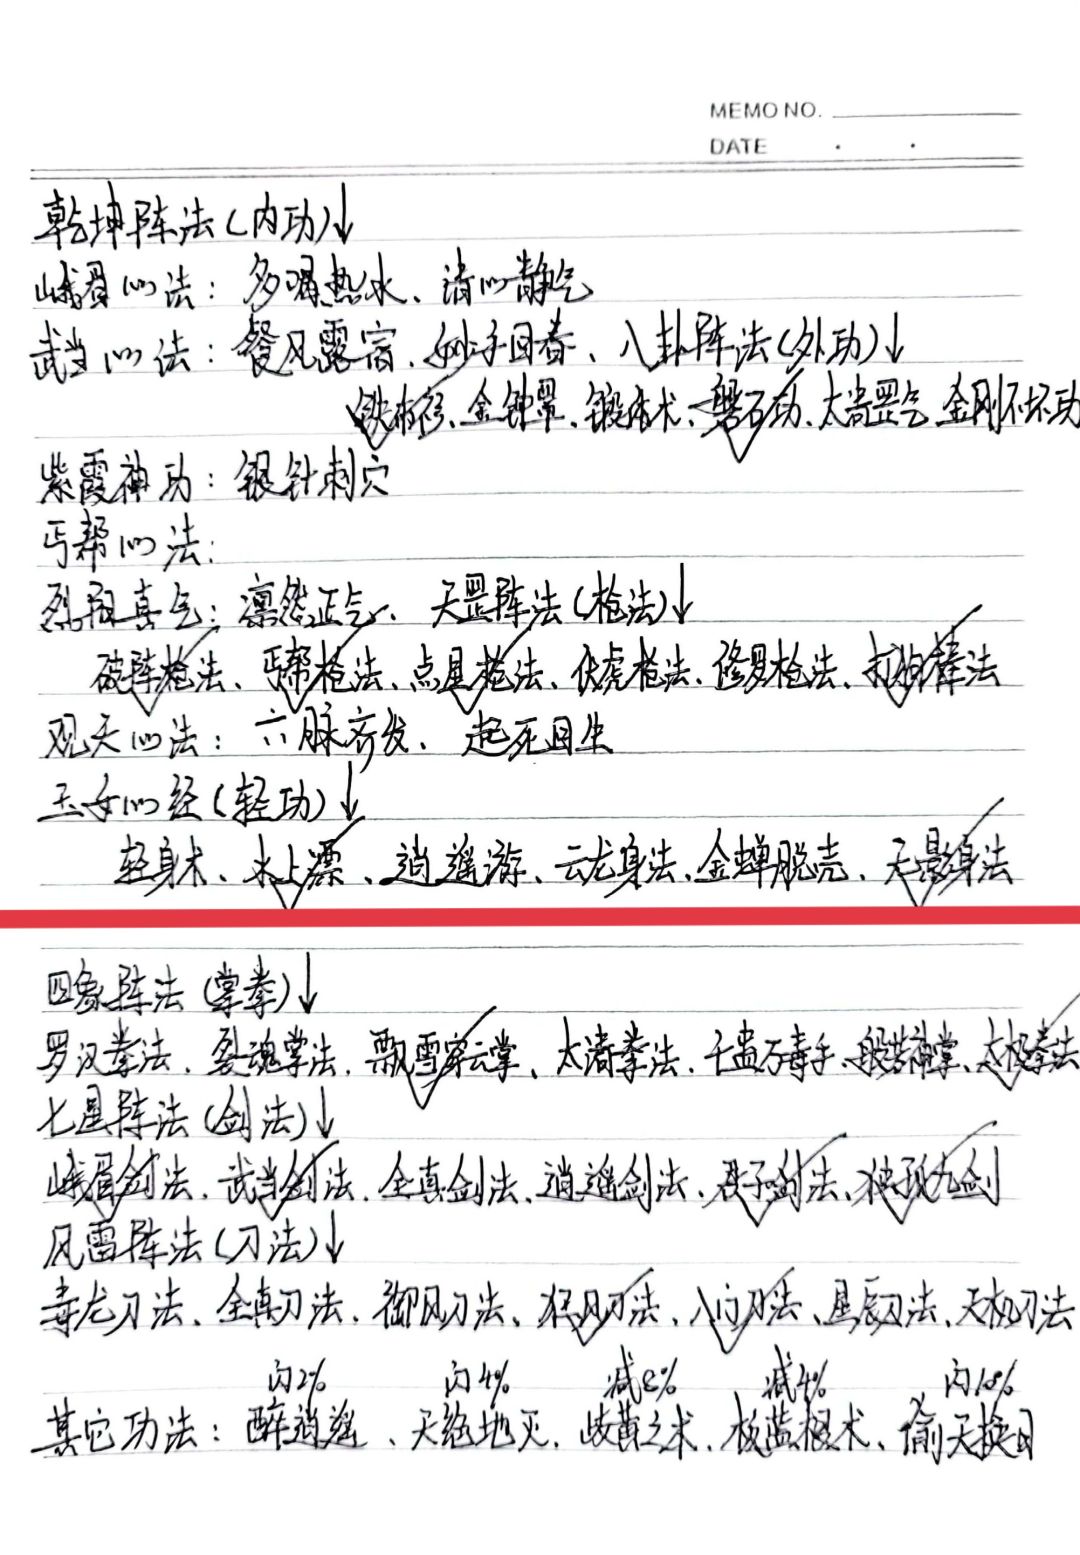 MEMO NO.
DATE
乾坤阵法(内功)↓
峨眉心法:多喝热水、清心静气
武当心法:餐风露宿、妙手回春、八卦阵法(外功)↓
铁布衫、金钟罩、锻体术、磐石功、太清罡气、金刚不坏功
紫霞神功:银针刺穴
丐帮心法:
烈阳真气:凛然正气、天罡阵法(枪法)↓
破阵枪法、丐帮枪法、点星枪法、伏虎枪法、修罗枪法、打狗棒法
观天心法:六脉齐发、起死回生
玉女心经(轻功)↓
轻身术、水上漂、逍遥游、云龙身法、金蝉脱壳、天影身法
四象阵法(掌拳)↓
罗汉拳法、裂魂掌法、飘雪穿云掌、太清拳法、千蛊万毒手、般若神掌、太极拳法
七星阵法(剑法)↓
峨眉剑法、武当剑法、全真剑法、逍遥剑法、君子剑法、独孤九剑
风雷阵法(刀法)↓
毒龙刀法、全真刀法、御风刀法、狂风刀法、八门刀法、星辰刀法、天机刀法
闪2% 闪4% 减2% 减4% 闪10%
其它功法:醉逍遥、天绝地灭、岐黄之术、板蓝根术、偷天换日